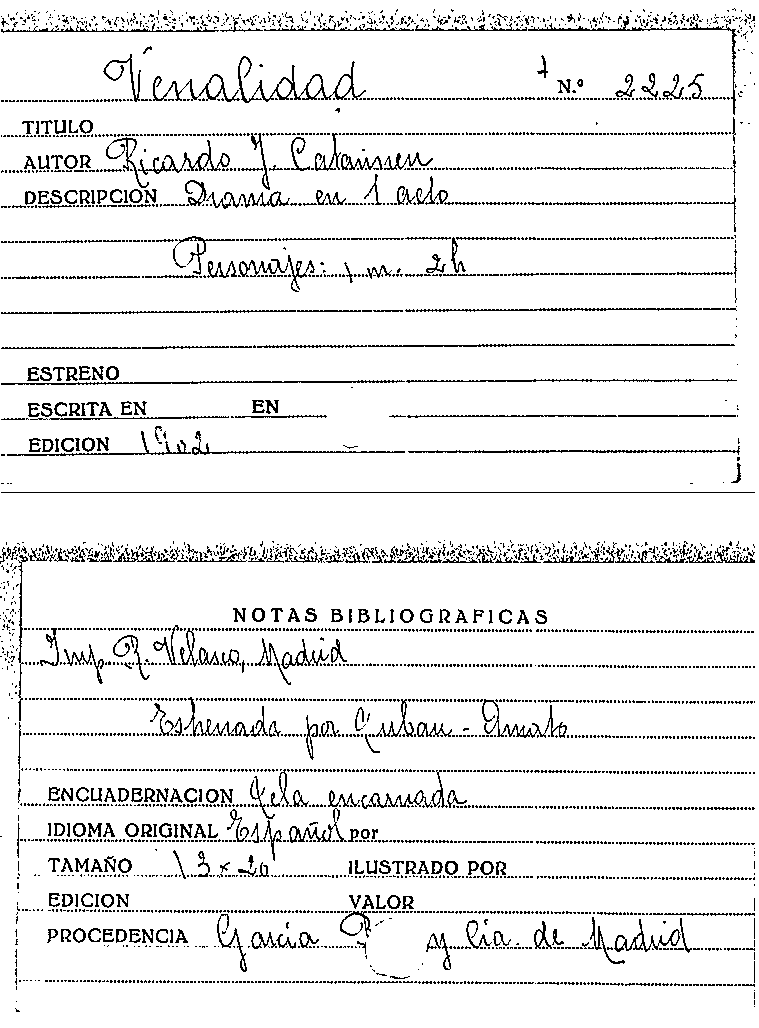 Venalidad
N.º 2225
TITULO
AUTOR Ricardo J. Catarineu
DESCRIPCION Drama en 1 acto
Personajes: 1 m. 2h
ESTRENO
ESCRITA EN EN
EDICION 1902
NOTAS BIBLIOGRAFICAS
Imp. R. Velasco, Madrid
Estrenada por Cubau - Amato
ENCUADERNACION Tela encarnada
IDIOMA ORIGINAL Español por
TAMAÑO 13 x 20 ILUSTRADO POR
EDICION VALOR
PROCEDENCIA García R y Cia. de Madrid